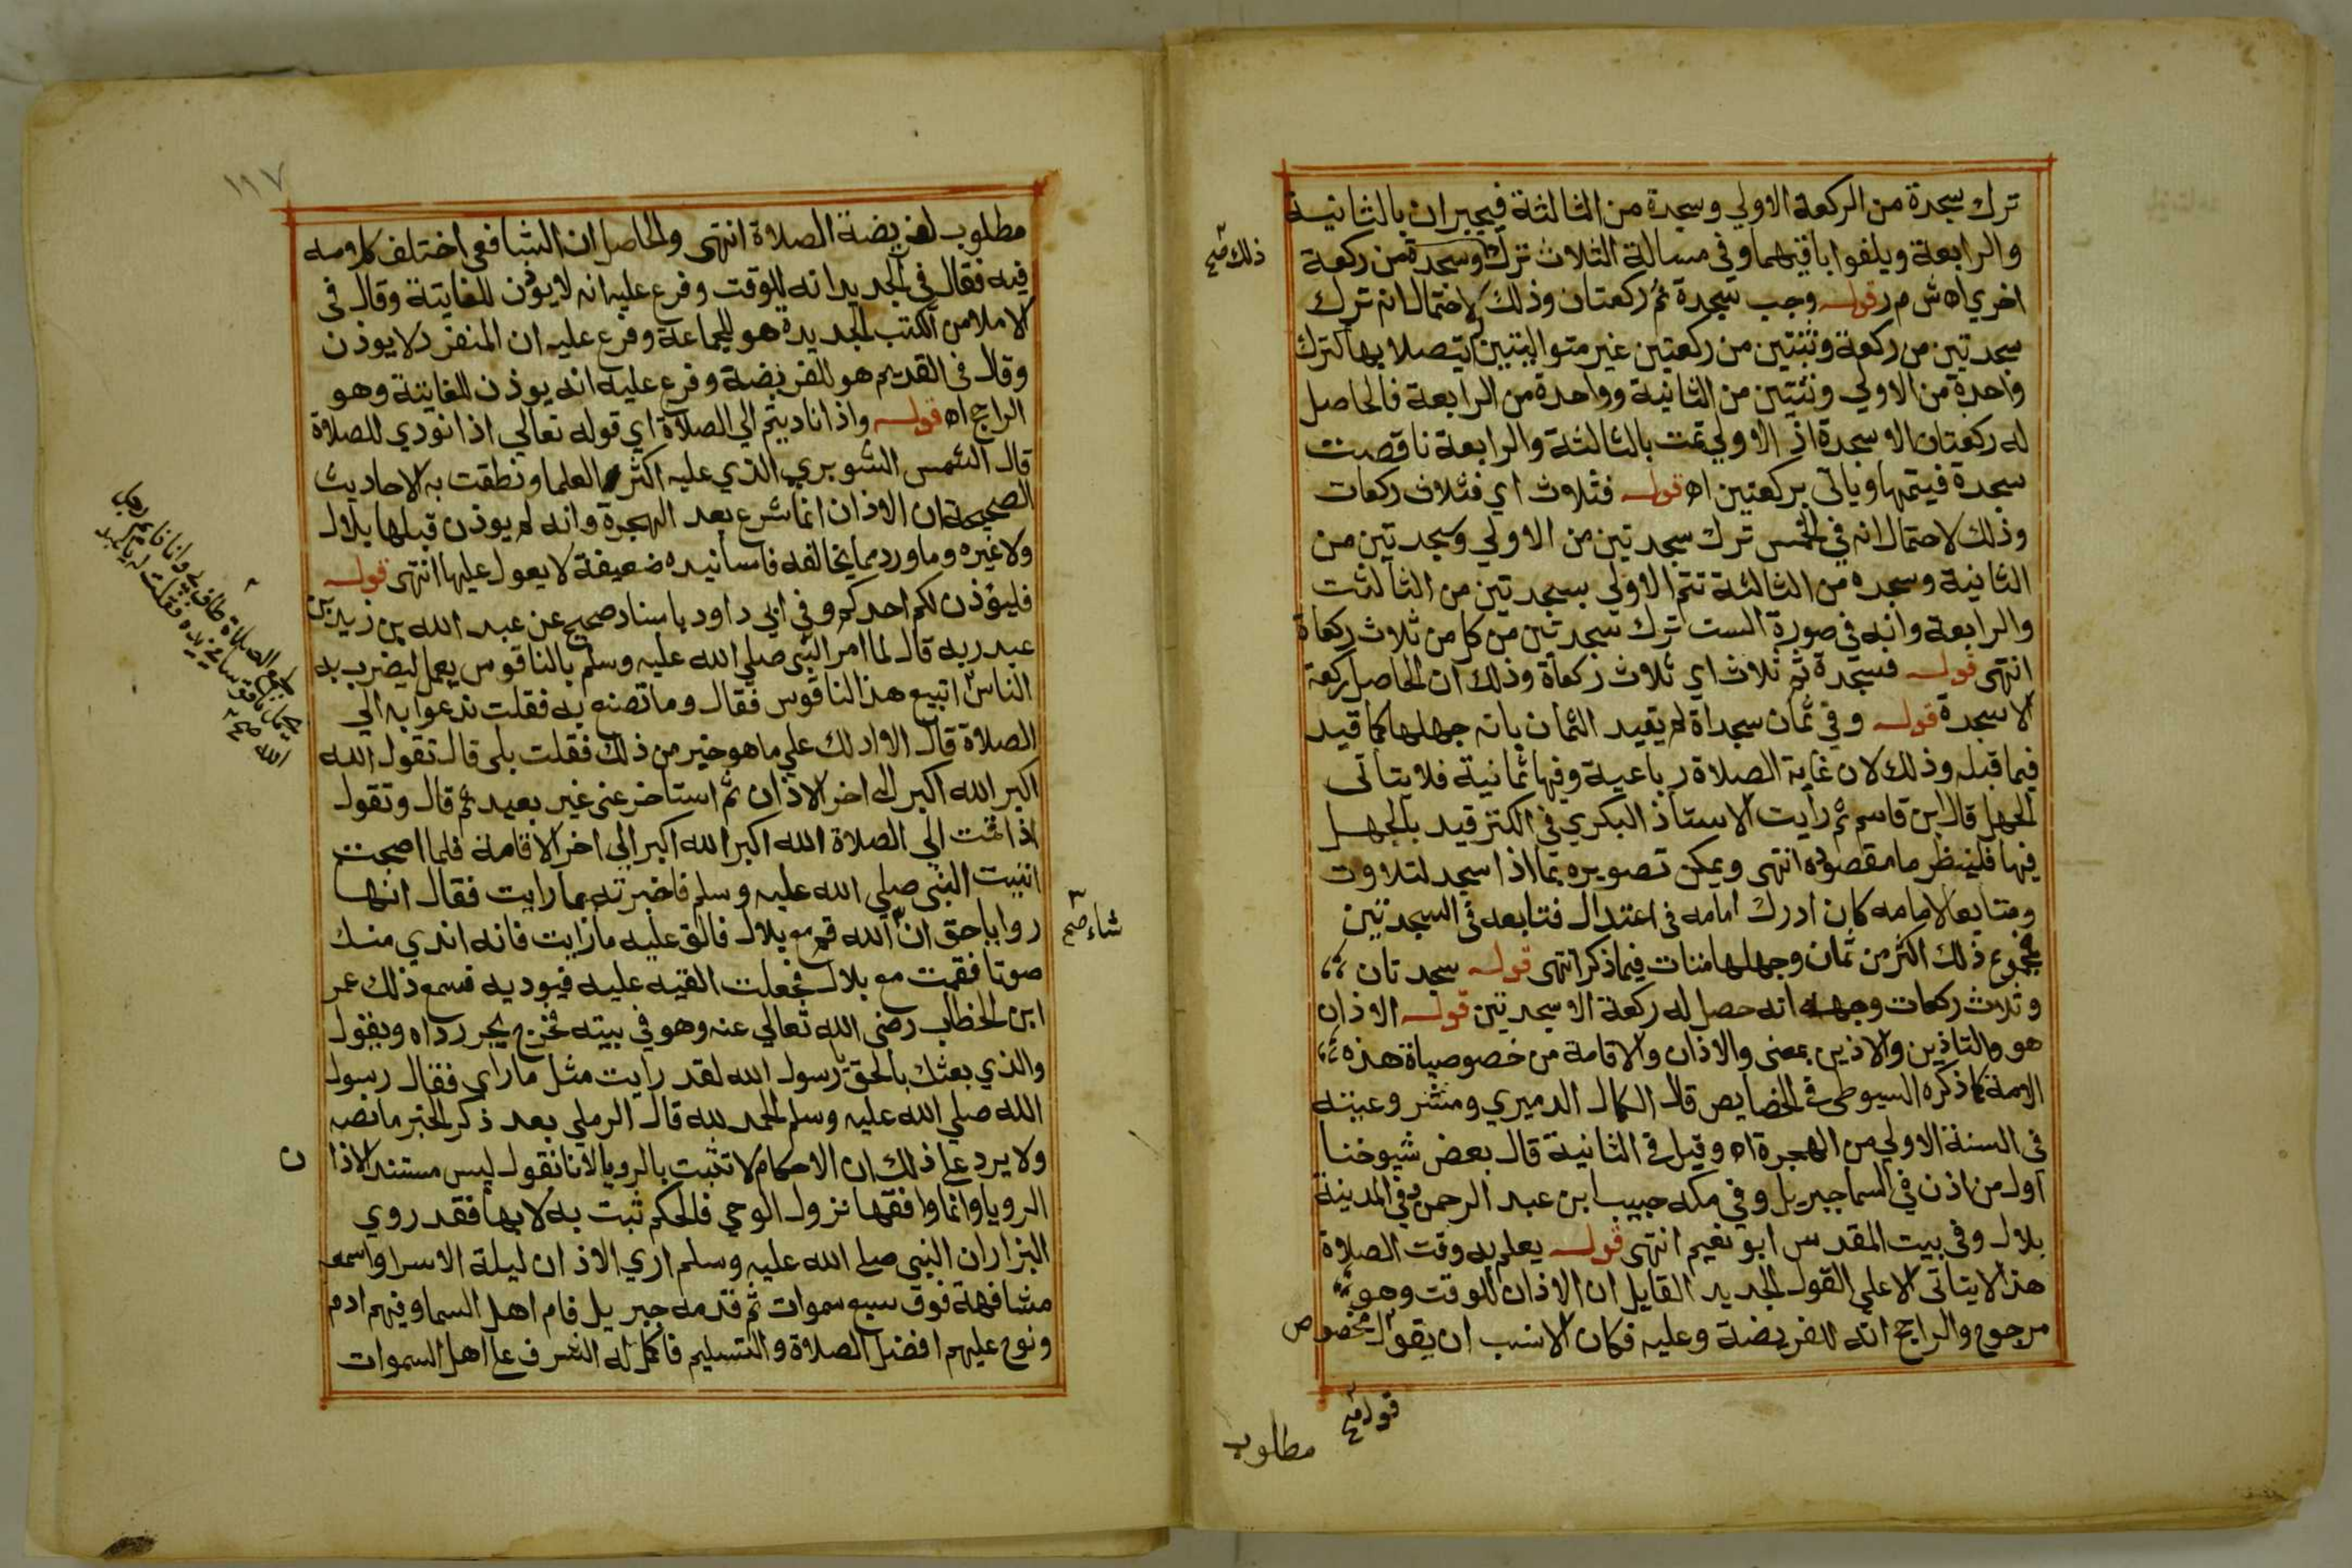 ترك سجدة من الركعة الاولي وسجدة من الثالثة فيجبران بالثانية
والرابعة ويلغوا باقيهما وفي مسالة الثلاث ترك وسجدة من ركعة
ذلك صح
اخري اه ش م ر قوله وجب سجدة ثم ركعتان وذلك لاحتمال انه ترك
سجدتين من ركعة وثنتين من ركعتين غير متواليتين لم يتصلا بها كترك
واحدة من الاولي وثنتين من الثانية وواحدة من الرابعة فالحاصل
له ركعتان الا سجدة اذ الاولي تمت بالثالثة والرابعة ناقصت
سجدة فيتمها وياتي بركعتين اه قوله فثلاث اي فثلاث ركعات
وذلك لاحتمال انه في الخمس ترك سجدتين من الاولي وسجدتين من
الثانية وسجده من الثالثة تتم الاولي بسجدتين من الثالثت
والرابعة وانه في صورة الست ترك سجدتين من كل من ثلاث ركعاة
انتهى قوله فسجدة ثم ثلاث اي ثلاث ركعاة وذلك ان الحاصل ركعة
الا سجدة قوله وفي ثمان سجداة لم يقيد الثمان بانه جهلها كما قيد
فيما قبله وذلك لان غاية الصلاة رباعية وفيها ثمانية فلا يتاتى
الجهل قال ابن قاسم ثم رايت الاستاذ البكري في الكنز قيد بالجهل
فيها فلينظر ما مقصوده انتهى ويمكن تصويره بما اذا سجد لتلاوت
ومتابعا لامامه كان ادرك امامه في اعتدال فتابعه في السجدتين
فمجموع ذلك اكثر من ثمان وجهلها منات فيما ذكر انتهى قوله سجدتان
وثلاث ركعات وجهه انه حصل له ركعة الا سجدتين قوله الاذان
هو والتاذين والاذين بمعنى والاذان والاقامة من خصوصياة هذه
الامة كما ذكره السيوطي في الخصايص قال الكمال الدميري ومشروعيته
في السنة الاولي من الهجرة اه وقيل في الثانية قال بعض شيوخنا
اول من اذن في السما جبريل وفي مكه حبيب ابن عبد الرحمن وفي المدينة
بلال وفي بيت المقدس ابو نعيم انتهى قوله يعلم به وقت الصلاة
هذا لا يتاتى الا علي القول الجديد القايل ان الاذان للوقت وهو
مرجوح والراجح انه للفريضة وعليه فكان الانسب ان يقول مخصوص
قول صح
مطلوب
١١٧
مطلوب لفريضة الصلاة انتهى والحاصل ان الشافعي اختلف كلامه
فيه فقال في الجديد انه للوقت وفرع عليه انه لا يؤذن للفايتة وقال في
الاملا من الكتب الجديدة هو للجماعة وفرع عليه ان المنفرد لا يوذن
وقال في القديم هو للفريضة وفرع عليه انه يوذن للفايتة وهو
الراجح اه قوله واذا ناديتم الي الصلاة اي قوله تعالي اذا نودي للصلاة
قال الشمس الشوبري الذي عليه اكثر العلما ونطقت به الاحاديث
الصحيحة ان الاذان انما شرع بعد الهجرة وانه لم يوذن قبلها بلال
ولا غيره وما ورد مما يخالفه فاسانيده ضعيفة لا يعول عليها انتهى قوله
فليؤذن لكم احدكم وفي ابي داود باسناد صحيح عن عبد الله بن زيد بن
عبد ربه قال لما امر النبي صلي الله عليه وسلم بالناقوس يعمل ليضرب به
الناس اتبيع هذا الناقوس فقال وما تصنع به فقلت ندعوا به الي
لجمع الصلاة طاف بي وانا نايم رجل
يحمل ناقوسا في يده فقلت له يا عبد
الله صح
الصلاة قال الا ادلك علي ما هو خير من ذلك فقلت بلى قال تقول الله
اكبر الله اكبر الى اخر الاذان ثم استاخر عني غير بعيد ثم قال وتقول
اذا قمت الي الصلاة الله اكبر الله اكبر الي اخر الاقامة فلما اصبحت
اتيت النبي صلي الله عليه وسلم فاخبرته بما رايت فقال انها
رويا حق ان الله قم مع بلال فالق عليه ما رايت فانه اندي منك
شاء صح
صوتا فقمت مع بلال فجعلت القيه عليه فيوديه فسمع ذلك عمر
ابن الخطاب رضي الله تعالي عنه وهو في بيته فخرج يجر رداه ويقول
والذي بعثك بالحق يا رسول الله لقد رايت مثل ما راي فقال رسول
الله صلي الله عليه وسلم الحمد لله قال الرملي بعد ذكر الخبر ما نصه
ولا يرد علي ذلك ان الاحكام لا تثبت بالرويا لاننا نقول ليس مستند الاذان
الرويا وانما وافقها نزول الوحي فالحكم ثبت به لا بها فقد روي
البزار ان النبي صلي الله عليه وسلم اري الاذان ليلة الاسرا واسمعه
مشافهة فوق سبع سموات ثم قدمه جبريل فام اهل السما وفيهم ادم
ونوح عليهم افضل الصلاة والتسليم فاكمل له الشرف علي اهل السموات